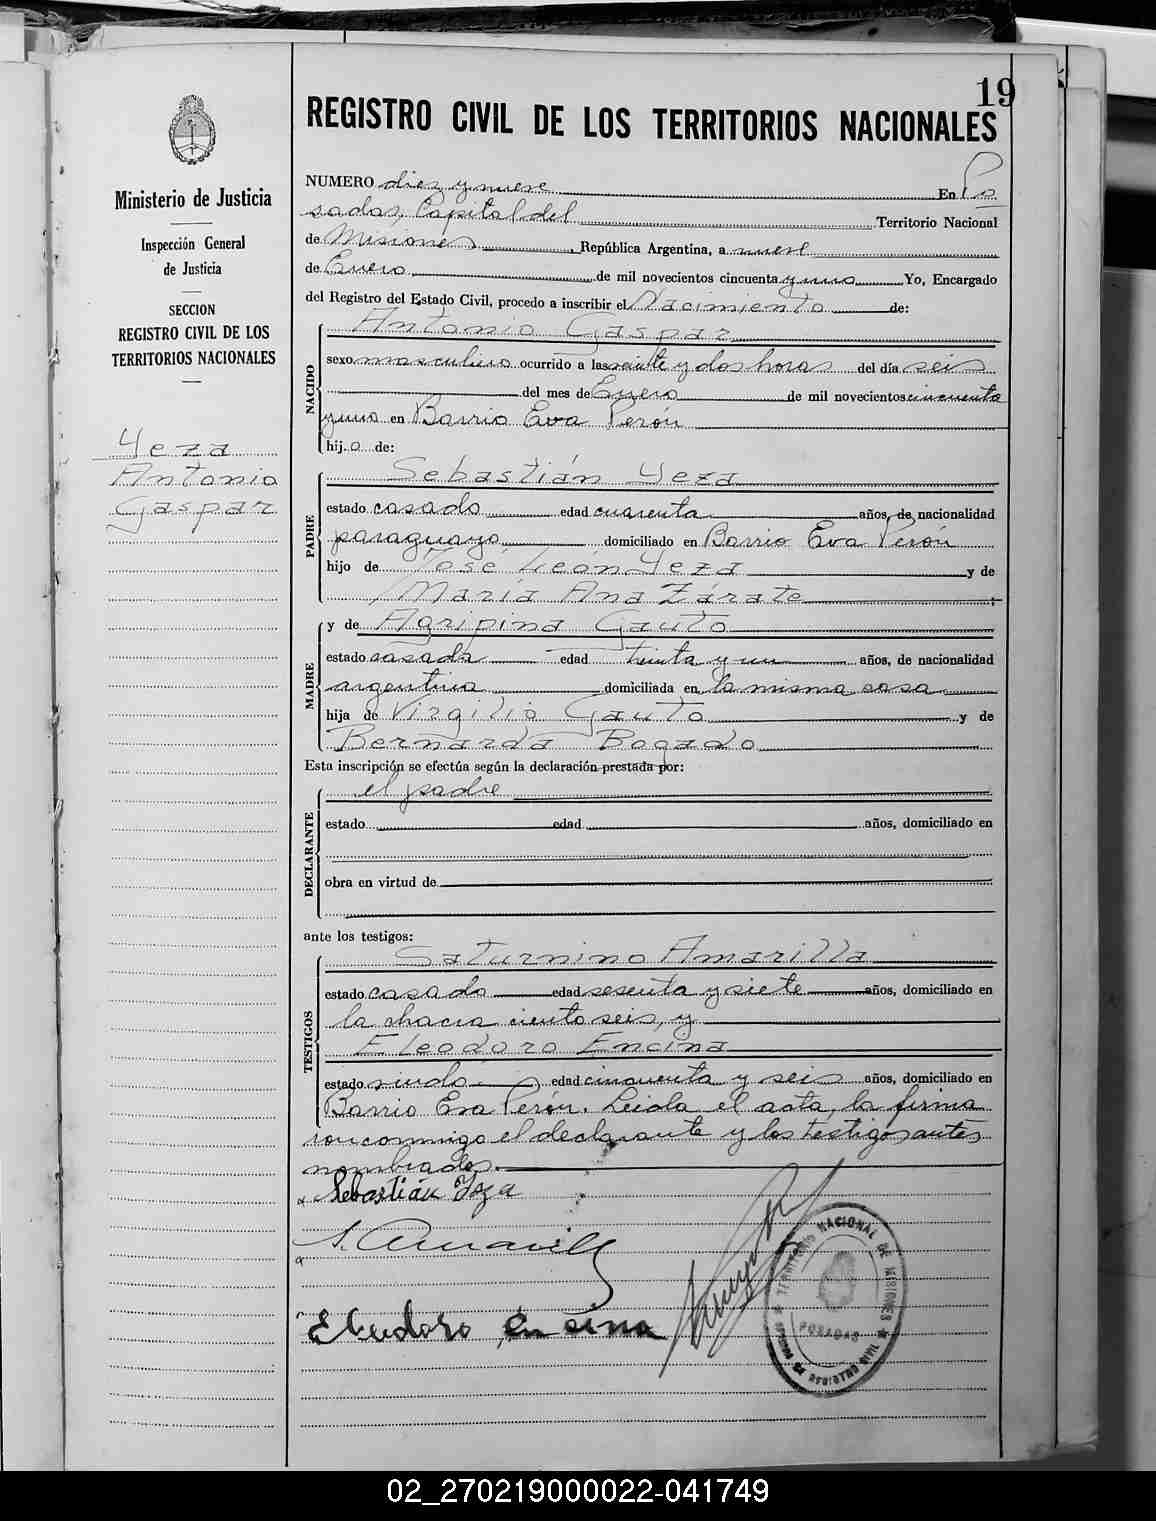 19
REGISTRO CIVIL DE LOS TERRITORIOS NACIONALES
Ministerio de Justicia
Inspección General
de Justicia
SECCION
REGISTRO CIVIL DE LOS
TERRITORIOS NACIONALES
Yeza
Antonio
Gaspar
NUMERO diez y nueve En Po
sadas, Capital del Territorio Nacional
de Misiones, República Argentina, a nueve
de Enero de mil novecientos cincuenta y uno Yo, Encargado
del Registro del Estado Civil, procedo a inscribir el Nacimiento de:
NACIDO
Antonio Gaspar
sexo masculino ocurrido a las veinte y dos horas del día seis
del mes de Enero de mil novecientos cincuenta
y uno en Barrio Eva Perón
hijo de:
PADRE
Sebastián Yeza
estado casado edad cuarenta años, de nacionalidad
paraguayo domiciliado en Barrio Eva Perón
hijo de José León Yeza y de
María Ana Zárate;
MADRE
y de Agripina Gauto
estado casada edad treinta y un años, de nacionalidad
argentina domiciliada en la misma casa
hija de Virgilio Gauto y de
Bernarda Bogado
Esta inscripción se efectúa según la declaración prestada por:
DECLARANTE
el padre
estado edad años, domiciliado en
obra en virtud de
ante los testigos:
TESTIGOS
Saturnino Amarilla
estado casado edad sesenta y siete años, domiciliado en
la chacra ciento seis, y
Eleodoro Encina
estado viudo edad cincuenta y seis años, domiciliado en
Barrio Eva Perón. Leida el acta, la firma
conconmigo el declarante y los testigos antes
nombrados.
Sebastián Yeza
S. Amarilla
Eleodoro Encina
TERRITORIO NACIONAL DE MISIONES
POSADAS
OFICINA DE REGISTRO CIVIL
02_270219000022-041749